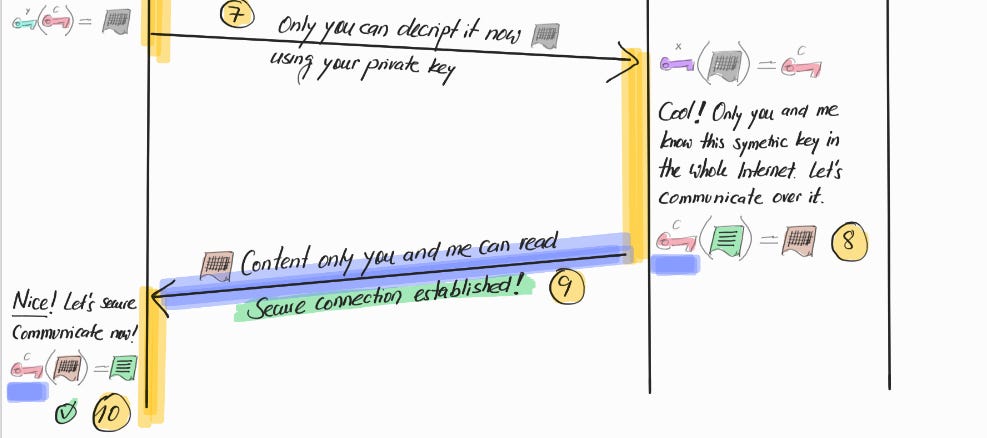 Y C
( ) =
7
Only you can decript it now
using your private key
X C
( ) =
Cool! Only you and me
know this symetric key in
the whole Internet. Let's
communicate over it.
C
( ) =
8
Content only you and me can read
Secure connection established!
9
Nice! Let's secure
Communicate now!
C
( ) =
10